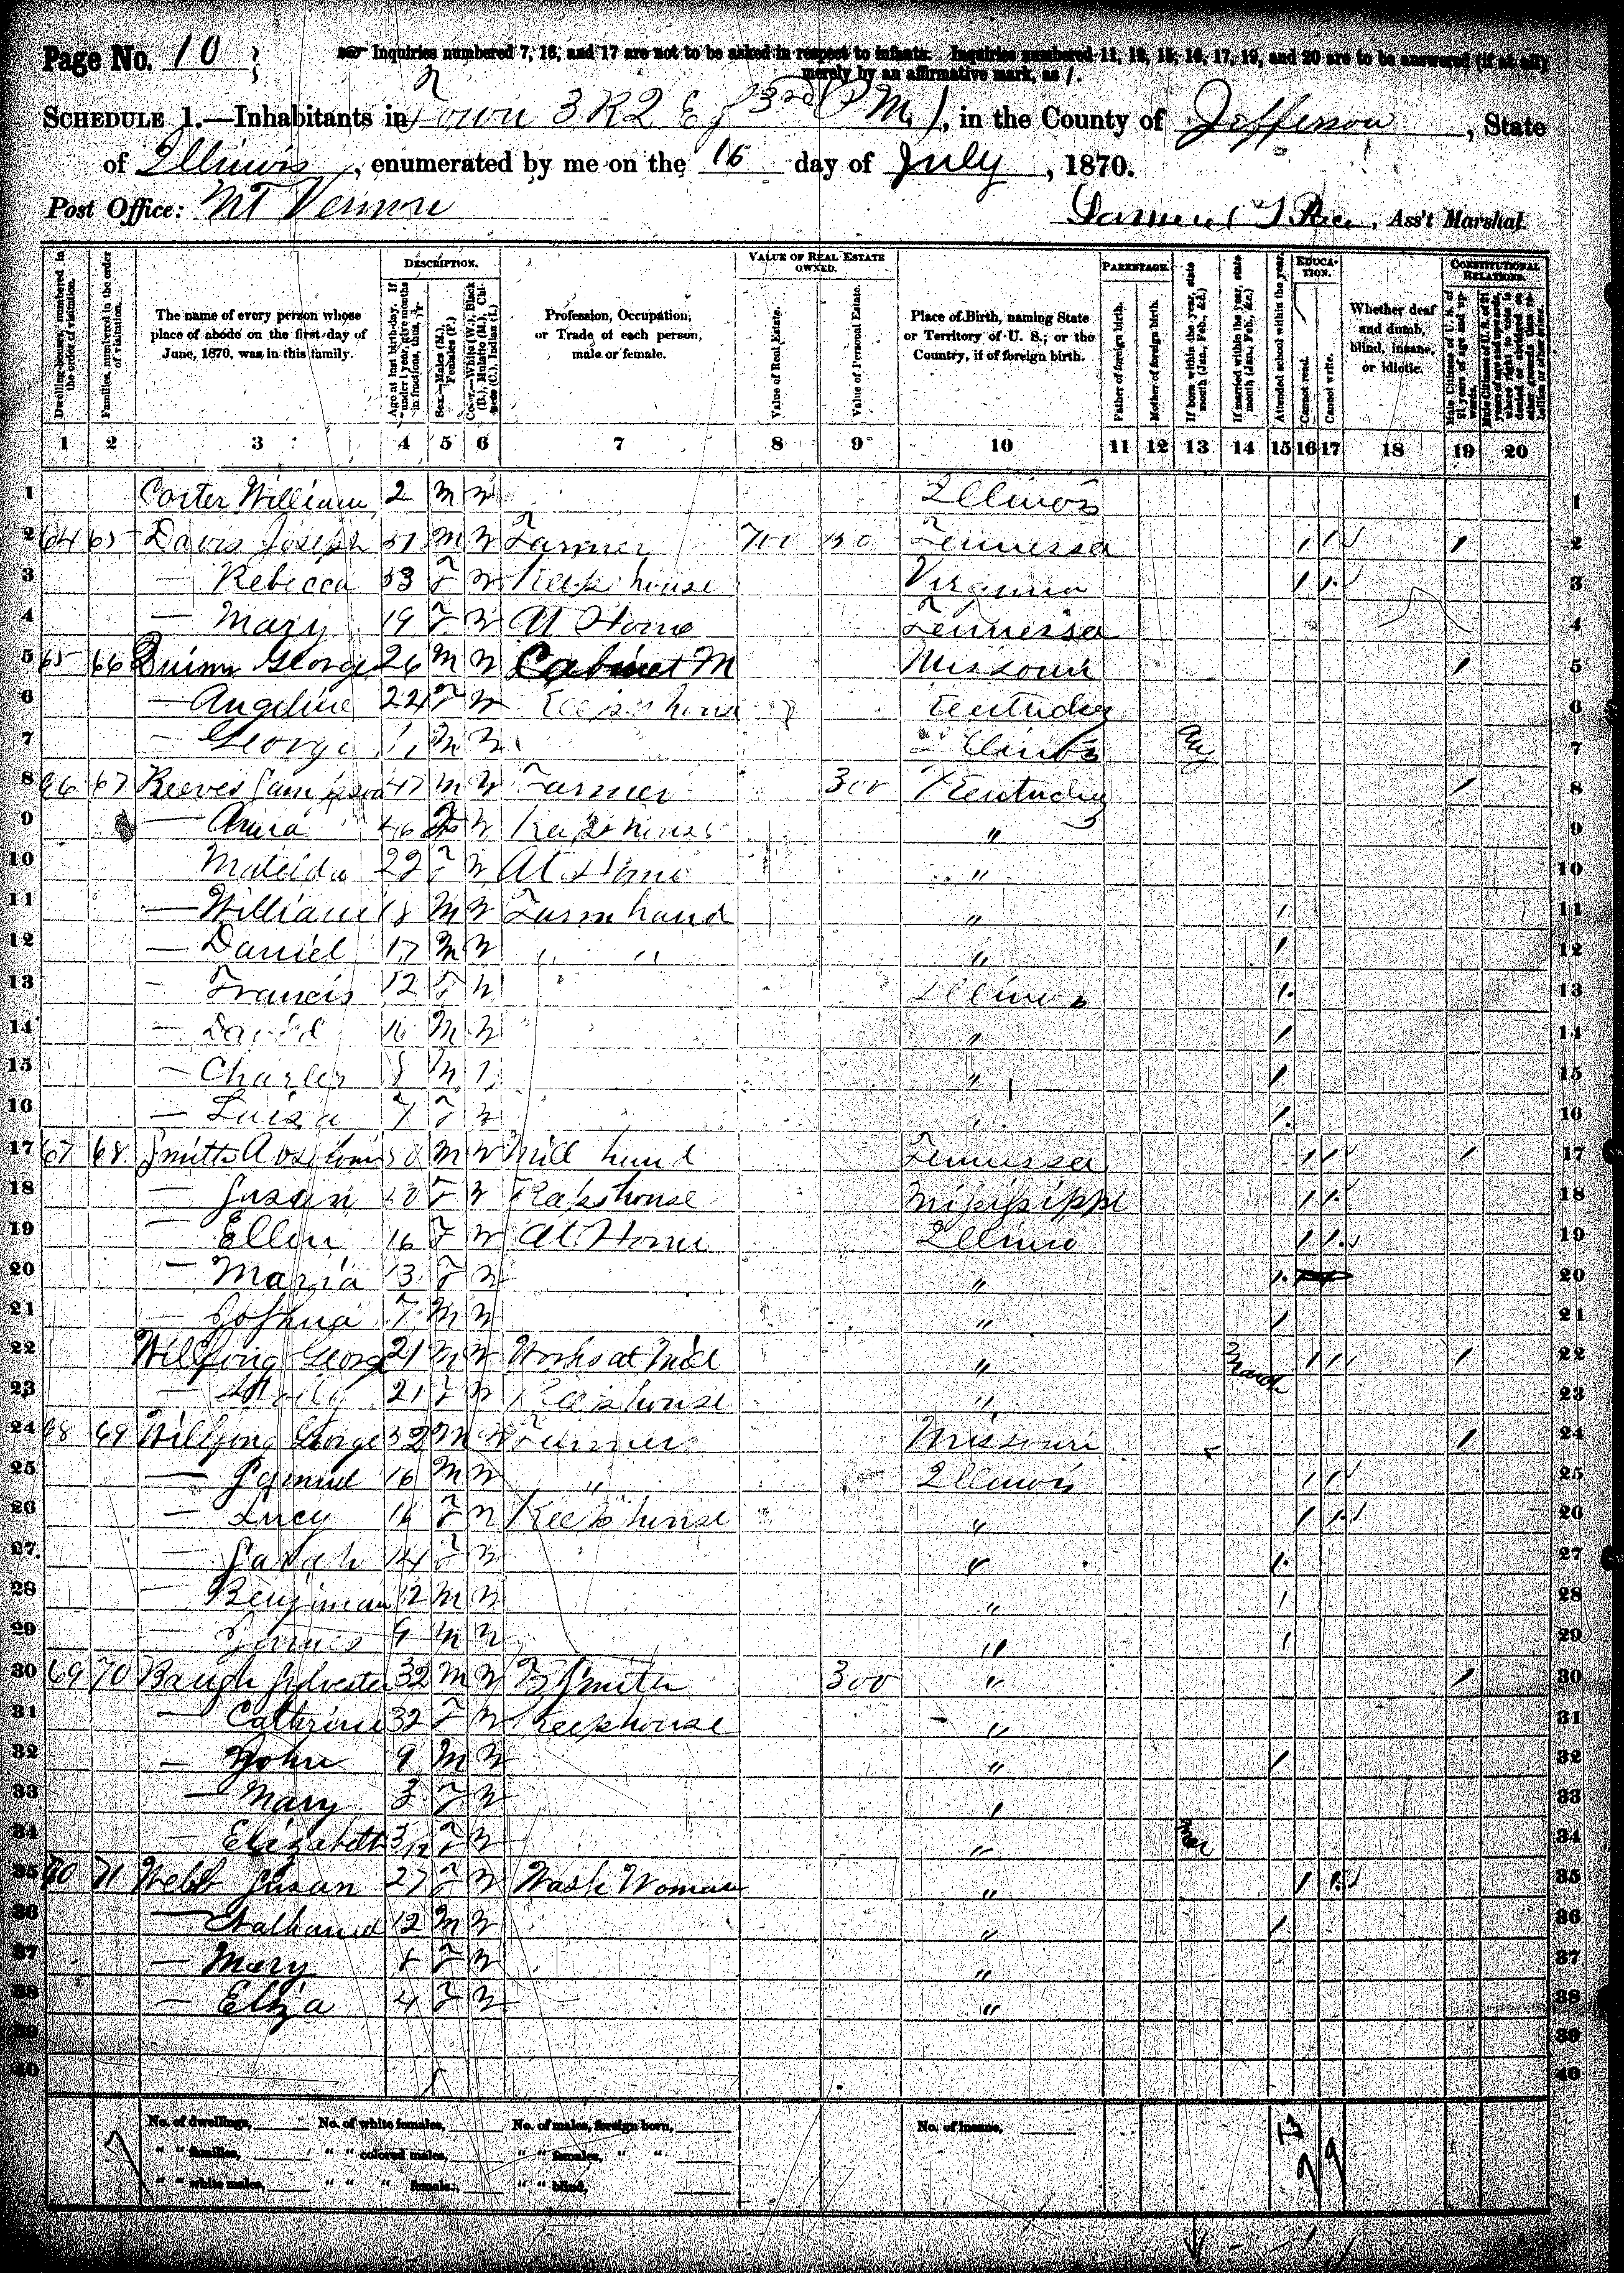 Page No. 10
Inquiries numbered 7, 16, and 17 are not to be asked in respect to infants. Inquiries numbered 11, 12, 15, 16, 17, 19, and 20 are to be answered (if at all)
merely by an affirmative mark, as /.
SCHEDULE 1.—Inhabitants in Town 3 R2 E of 3rd P M, in the County of Jefferson, State
of Illinois, enumerated by me on the 15 day of July, 1870.
Post Office: Mt Vernon
Ass't Marshal.
DESCRIPTION. VALUE OF REAL ESTATE OWNED. PARENTAGE. EDUCATION. CONSTITUTIONAL RELATIONS.
Dwelling-houses, numbered in the order of visitation.
Families, numbered in the order of visitation.
The name of every person whose place of abode on the first day of June, 1870, was in this family.
Age at last birth-day. If under 1 year, give months in fractions, thus,
Sex.—Males (M.), Females (F.)
Color.—White (W.), Black (B.), Mulatto (M.), Chinese (C.), Indian (I.)
Profession, Occupation, or Trade of each person, male or female.
Value of Real Estate.
Value of Personal Estate.
Place of Birth, naming State or Territory of U. S.; or the Country, if of foreign birth.
Father of foreign birth.
Mother of foreign birth.
If born within the year, state month (Jan., Feb., &c.)
If married within the year, state month (Jan., Feb., &c.)
Attended school within the year.
Cannot read.
Cannot write.
Whether deaf and dumb, blind, insane, or idiotic.
Male Citizens of U. S. of 21 years of age and upwards.
1 2 3 4 5 6 7 8 9 10 11 12 13 14 15 16 17 18 19 20
1 William 2 M W Illinois 1
2 64 65 Davis Joseph M W Farmer Tennessee / / / 2
3 — Rebecca 53 F W Keeps house Virginia / / 3
4 — Mary 19 F W At Home Tennessee 4
5 65 66 Quinn George 26 M W Cabinet M Missouri / 5
6 — Angeline 22 F W Keeps house Kentucky 6
7 — George M W Illinois Aug 7
8 66 67 Reeves Sampson 47 M W Farmer 300 Kentucky / 8
9 — Anna 46 F W Keeps house " 9
10 Matilda 22 F W At Home " 10
11 — William 18 M W Farm hand " / 11
12 — Daniel 17 M W " " " / 12
13 — Francis 12 F W Illinois / 13
14 — David 10 M W " / 14
15 — Charles M " / 15
16 — Luisa 7 F W " / 16
17 67 68 Smith M W Mill hand Tennessee / / / 17
18 — Susan F W Keeps house Missisippi / / 18
19 — Ellen 16 F W At Home Illinois / / 19
20 — Maria 13 F W " / 20
21 — Joshua 7 M W " / 21
22 Willfong George 21 M W Works at Mill " March / / / 22
23 — 21 F W Keeps house " 23
24 68 69 Willfong George 52 M W Farmer Missouri / 24
25 — Samuel 16 M W " Illinois / / 25
26 — Lucy 16 F W Keeps house " / / 26
27 — Sarah 14 F W " / 27
28 — Benjiman 12 M W " / 28
29 — James 9 M W " / 29
30 69 70 Baugh Sylvester 32 M W B Smith 300 " / 30
31 — Cathrine 32 F W Keeps house " 31
32 — John 9 M W " / 32
33 — Mary 3 F W " 33
34 — Elizabeth 3/12 F W " Mar 34
35 70 71 Webb Susan 27 F W Wash Woman " / / 35
36 — Nathaniel 12 M W " / 36
37 — Mary F W " 37
38 — Eliza 4 F W " 38
39 39
40 40
No. of dwellings, No. of white females, No. of males, foreign born, No. of insane,
" " families, " " colored males, " " females, " "
" " white males, " " " females, " " blind,